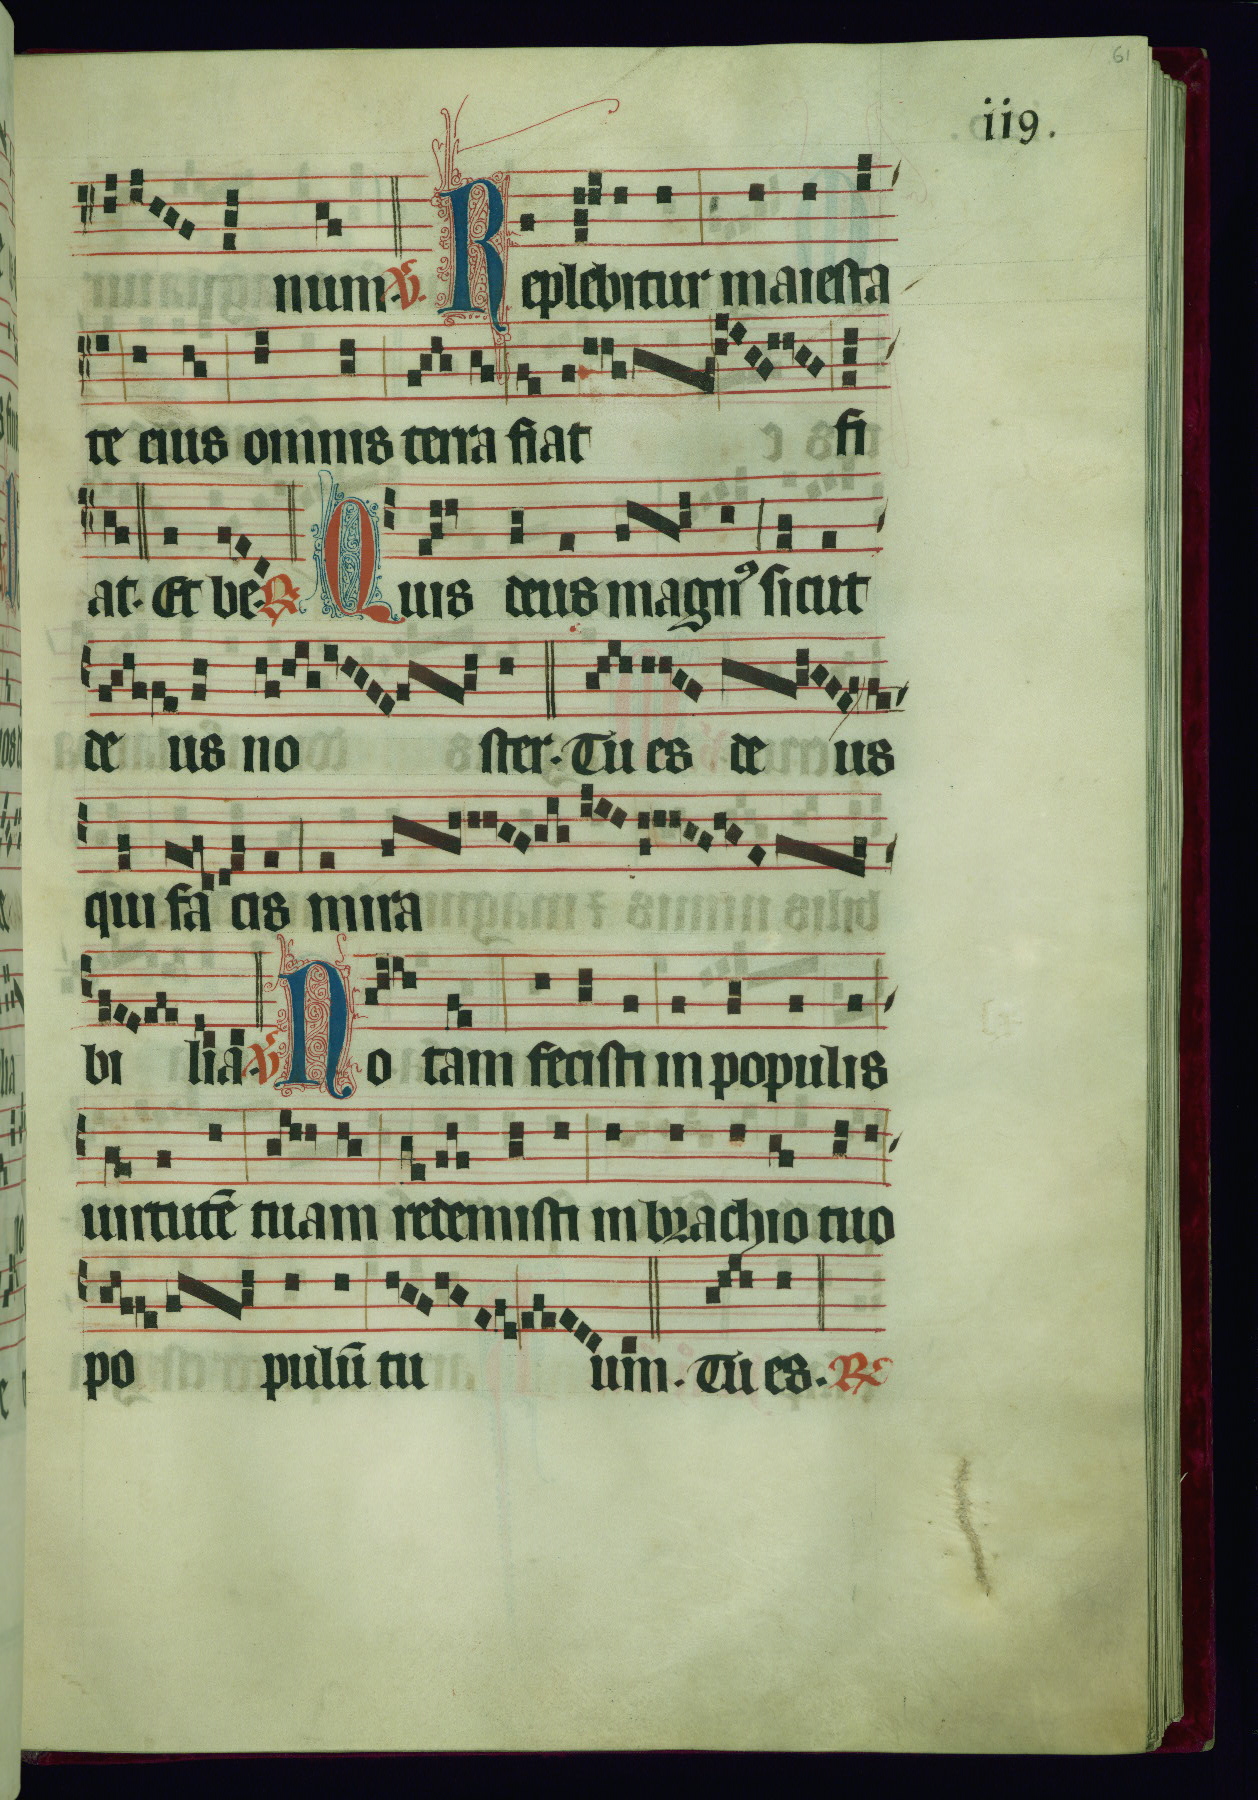 61
119.
num. ℣. Replebitur maiesta
te eius omnis terra fiat fi
at. Et be. ℟. Quis deus magnꝰ sicut
de us no ster. Tu es de us
qui fa cis mira
bi lia. ℣. No tam fecisti in populis
uirtutē tuam redemisti in brachio tuo
po pulū tu um. Tu es. ℟